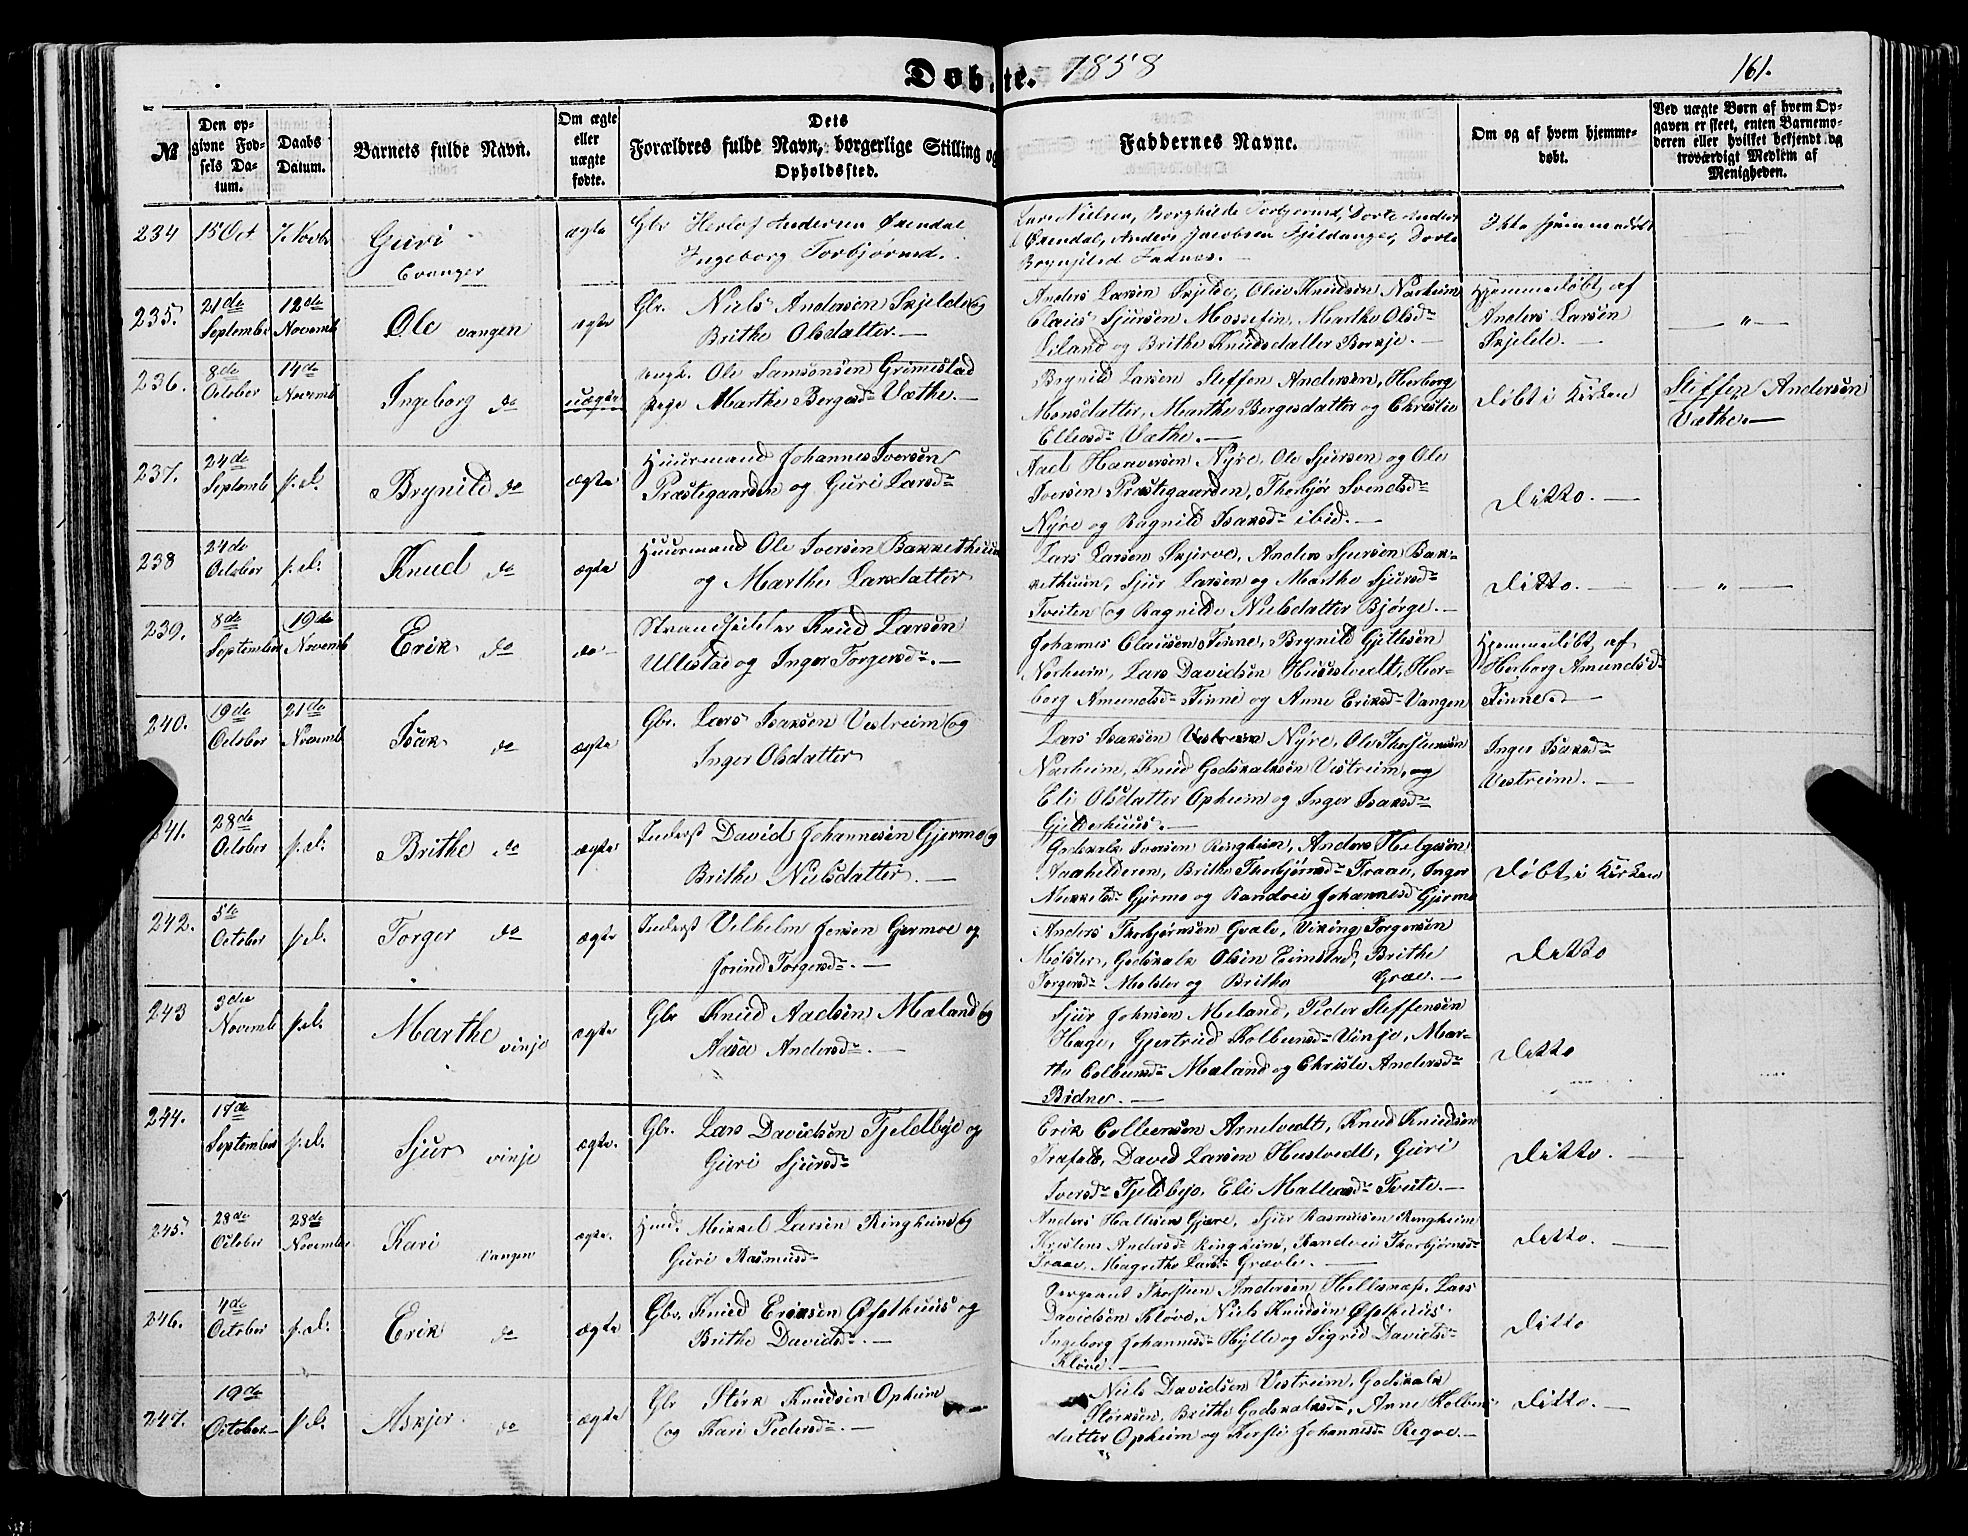 Døbte. 1858
161.
№
Den opgivne Fødsels Datum.
Daabs Datum.
Barnets fulde Navn.
Om ægte eller uægte fødte.
Dets Forældres fulde Navn, borgerlige Stilling og Opholdssted.
Faddernes Navne.
Om og af hvem hjemmedøbt.
Ved uægte Børn af hvem Opgaven er skeet, enten Barnemoderen eller hvilket bekjendt og troværdigt Medlem af Menigheden.
234 15 Oct 7 Novbr Guri Evanger ægte Gbr Herlof Andersen Øxendal
Ingeborg Torbjørnsd.
Lars Nielsen, Borghilde Torbjørnsd, Dorte Anders
Øxendal, Anders Jacobsen Fjeldanger, Dorte
Brynjilsd Fadnes. —
Ikke hjemmedøbt
235. 21de September 12de Novemb Ole Vangen ægte Gbr. Niels Andersen Skjelde og
Brithe Olsdatter. —
Anders Larsen Skjelde, Oliv Knudsen Nærheim
Claus Sjursen Mossefin, Marthe Olsd
Liland og Brithe Knudsdatter Borkje. —
Hjemmedøbt af
Anders Larsen
Skjelde. —
— " —
236. 8de October 14de Novemb Ingeborg do uægte Ungk. Ole Samsonsen Grimestad
Pige Marthe Bergesd Væthe. —
Brynild Larsen Steffen Andersen, Herborg
Monsdatter, Marthe Bergesdatter og Christie
Ellevsd Væthe. —
Døbt i Kirken
Steffen Andersen
Væthe. —
237. 24de Septemb s.d. Brynild do ægte Huurmand Johannes Iversen
Præstegaarden og Guri Larsd
Aad Haaversen Nyre, Ole Sjursen og Ole
Iversen Præstegaarden, Thorbjør Svendsd
Nyre og Ragnild Isaksd ibid. —
Ditto. —
238 24de October s.d. Knud do ægte Huurmand Ole Iversen Bakkethuun
og Marthe Larsdatter
Lars Larsen Skjerve, Anders Sjursen Bak-
kethuun, Sjur Larsen og Marthe Sjursd
Tveiten og Ragnilde Nielsdatter Bjørge. —
Ditto. — — " —
239. 8de September 19de Novemb Erik do do Strandsidder Knud Larsen
Ullestad og Inger Torgersd. —
Johannes Clausen Finne, Brynild Gjellesen
Norheim, Lars Davidsen Husestvedt, Her-
borg Amundsd Finne og Anne Eriksd Vangen
Hjemmedøbt af
Herborg Amundsd
Finne. —
240. 19de October 21de Novemb Isak do ægte Gbr. Lars Isaksen Vestreim og
Inger Olsdatter
Lars Isaksen Vestreim Nyre, Ole Thorsteinsen
Nærheim, Knud Godskalksen Vestreim, og
Eli Olsdatter Opheim og Inger Isaksd
Gjelderhuus. —
Inger Isaksd
Vestreim. —
241. 28de October s.d. Brithe do ægte Inderst David Johannesen Gjermo og
Brithe Nielsdatter. —
Godskalk Iversen Ringheim, Anders Helgesen
Aaahelderen, Brithe Thorbjørnsd Traae, Inger
Mikkelsd Gjermo og Randvei Johannesd Gjermo
Døbt i Kirken
242. 5te October s.d. Torger do ægte Inderst Velhelm Jensen Gjermoe og
Jorind Torgersd. —
Anders Thorbjørnsen Gvale, Viking Torgersen
Mølster, Godskalk Olsen Eimstad, Brithe
Torgersd Molster og Brithe Græe. —
Ditto
243 3die Novemb s.d. Marthe Vinje ægte Gbr Knud Aadsen Mæland og
Aasa Andersd. —
Sjur Johnsen Meland, Peder Steffensen
Hage, Gjertrud Kolbensd Vinje, Mar-
the Colbensd Mæland og Christi Andersd
Bidne. —
Ditto
244. 17de September s.d. Sjur Vinje ægte. Gbr. Lars Davidsen Fjeldbye og
Guri Sjursd
Erik Colbensen Arnetvedt, Knud Knudsen
David Larsen Hustvedt, Guri
Iversd Fjeldbye, Eli Mallensd Tveite. —
Ditto. —
245. 28de October 28de November Kari Vangen ægte. Huusm. Mikkel Larsen Ringheim og
Guri Rasmusd
Anders Hallesen Gjære, Sjur Rasmusen Ringheim
Kristens Andersd Ringheim, Randvei Thorbjørnsd
Traae, Magrethe Larsd Grævle. —
Ditto. —
246. 4de October s.d. Erik do ægte Gbr. Knud Eriksen Øfsthuus og
Brithe Davidsd. —
Sergeant Thorsten Andersen Helleraas, Lars
Davidsen Kløve, Niels Knudsen Øfsthuus.
Ingeborg Johannesd Hylle og Sigrid Davidsd
Kløve. —
Ditto
247. 19de October. s.d. Askjer do ægte Gbr Størk Knudsen Opheim
og Kari Pedersd. —
Niels Davidsen Vestreim, Godskalk
Størksen, Brithe Godskalksd, Anne Kolbens
datter Opheim og Kersti Johannesd Regve. —
Ditto. —